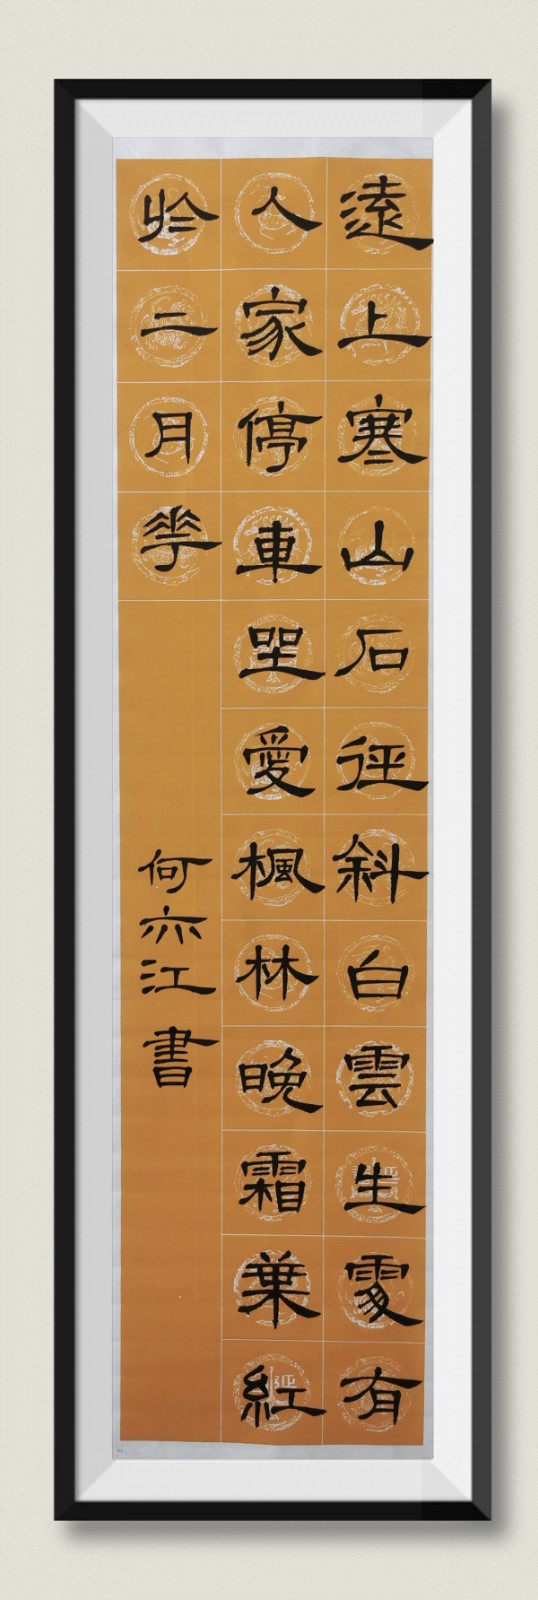 遠上寒山石徑斜白雲生處有
人家停車坐愛楓林晚霜葉紅
於二月花
何亦江書